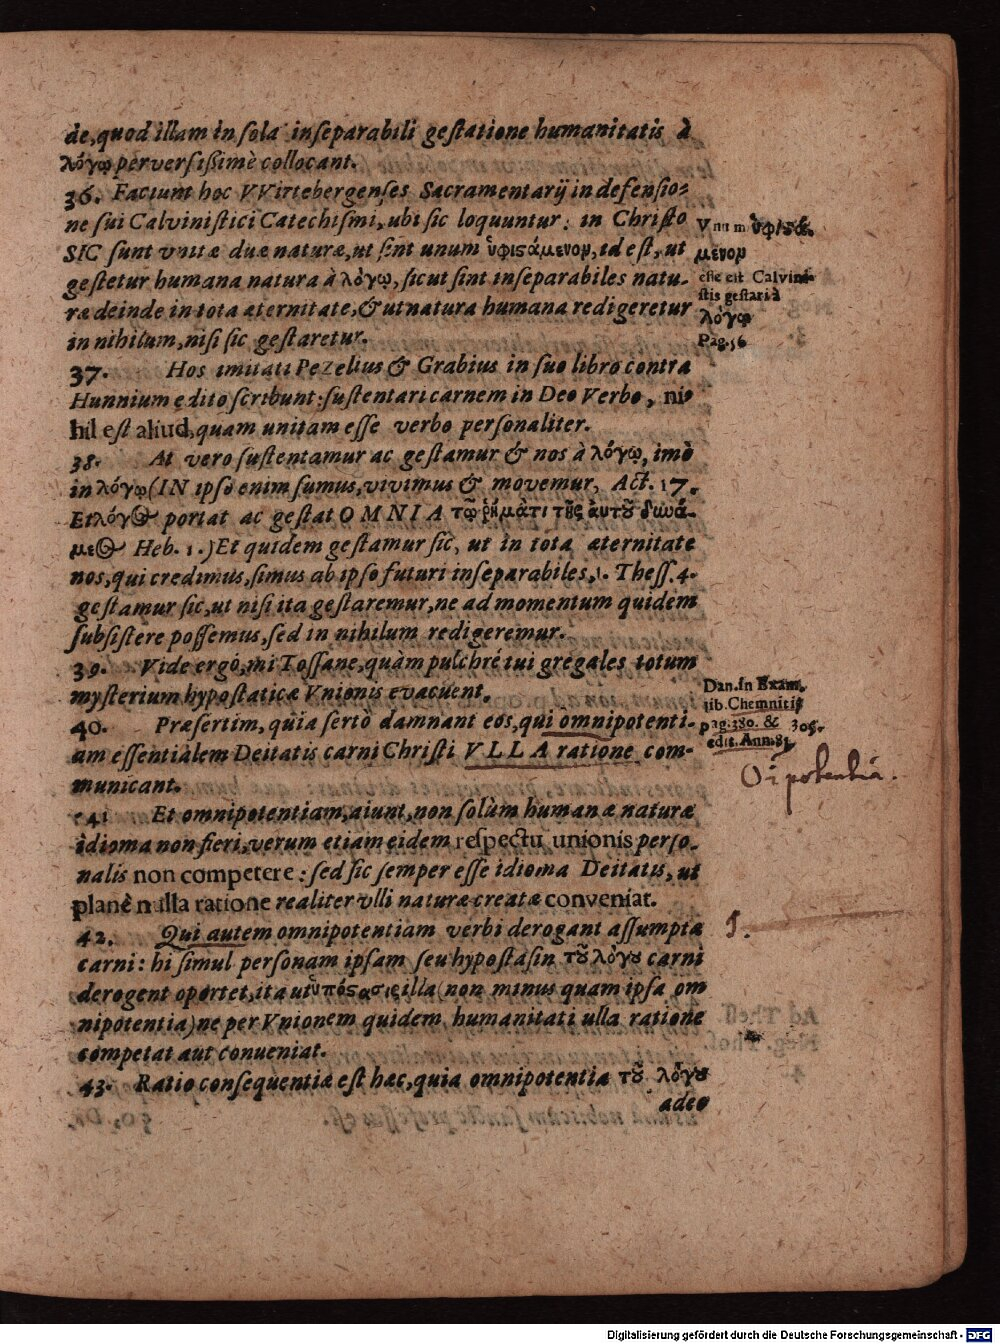 de, quod illam in sola inseparabili gestatione humanitatis à
λόγῳ perversißimè collocant.
36. Faciunt hoc VVirtebergenses Sacramentarij in defensio-
ne sui Calvinistici Catechismi, ubi sic loquuntur: in Christo
SIC sunt unitæ duæ naturæ, ut sint unum ὑφιστάμενον, id est, ut
gestetur humana natura à λόγῳ, sicut sint inseparabiles natu-
ræ deinde in tota æternitate, & ut natura humana redigeretur
in nihilum, nisi sic gestaretur.
Vnum ὑφιστά-
μενον
esse est Calvini-
stis gestari à
λόγῳ
Pag. 56
37. Hos imitati Pezelius & Grabius in suo libro contra
Hunnium edito scribunt: sustentari carnem in Deo Verbo, ni-
hil est aliud, quam unitam esse verbo personaliter.
38. At vero sustentamur ac gestamur & nos à λόγῳ, imò
in λόγῳ (IN ipso enim sumus, vivimus & movemur, Act. 17.
Et λόγος portat ac gestat OMNIA τῷ ῥήματι τῆς αὐτοῦ δυνά-
μεως Heb. 1.) Et quidem gestamur sic, ut in tota æternitate
nos, qui credimus, simus ab ipso futuri inseparabiles, 1. Thess. 4.
gestamur sic, ut nisi ita gestaremur, ne ad momentum quidem
subsistere possemus, sed in nihilum redigeremur.
39. Vide ergò, mi Tossane, quàm pulchrè tui gregales totum
mysterium hypostaticæ Vnionis evacuent.
40. Præsertim, quia sertò damnant eos, qui omnipotenti-
am essentialem Deitatis carni Christi VLLA ratione com-
municant.
Dan. in Exam.
lib. Chemnitij
pag. 380. & 305.
edit. Ann. 81
Oipotentia.
41 Et omnipotentiam, aiunt, non solùm humanæ naturæ
idioma non fieri, verum etiam eidem respectu unionis perso-
nalis non competere: sed sic semper esse idioma Deitatis, ut
planè nulla ratione realiter ulli naturæ creatæ conveniat.
42. Qui autem omnipotentiam verbi derogant assumptæ
carni: hi simul personam ipsam seu hypostasin τοῦ λόγου carni
derogent oportet, ita ut ὑπόστασις illa (non minus quam ipsa om
nipotentia) ne per Vnionem quidem humanitati ulla ratione
competat aut conveniat.
43. Ratio consequentiæ est hæc, quia omnipotentia τοῦ λόγου
adeo
Digitalisierung gefördert durch die Deutsche Forschungsgemeinschaft - DFG